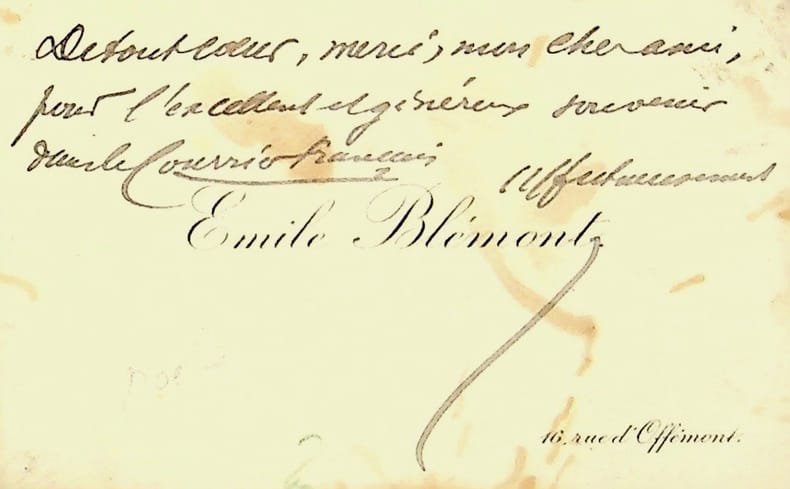 De tout cœur, merci, mon cher ami,
pour l'excellent et généreux souvenir
dans le Courrier français
Affectueusement
Emile Blémont.
16, rue d'Offémont.